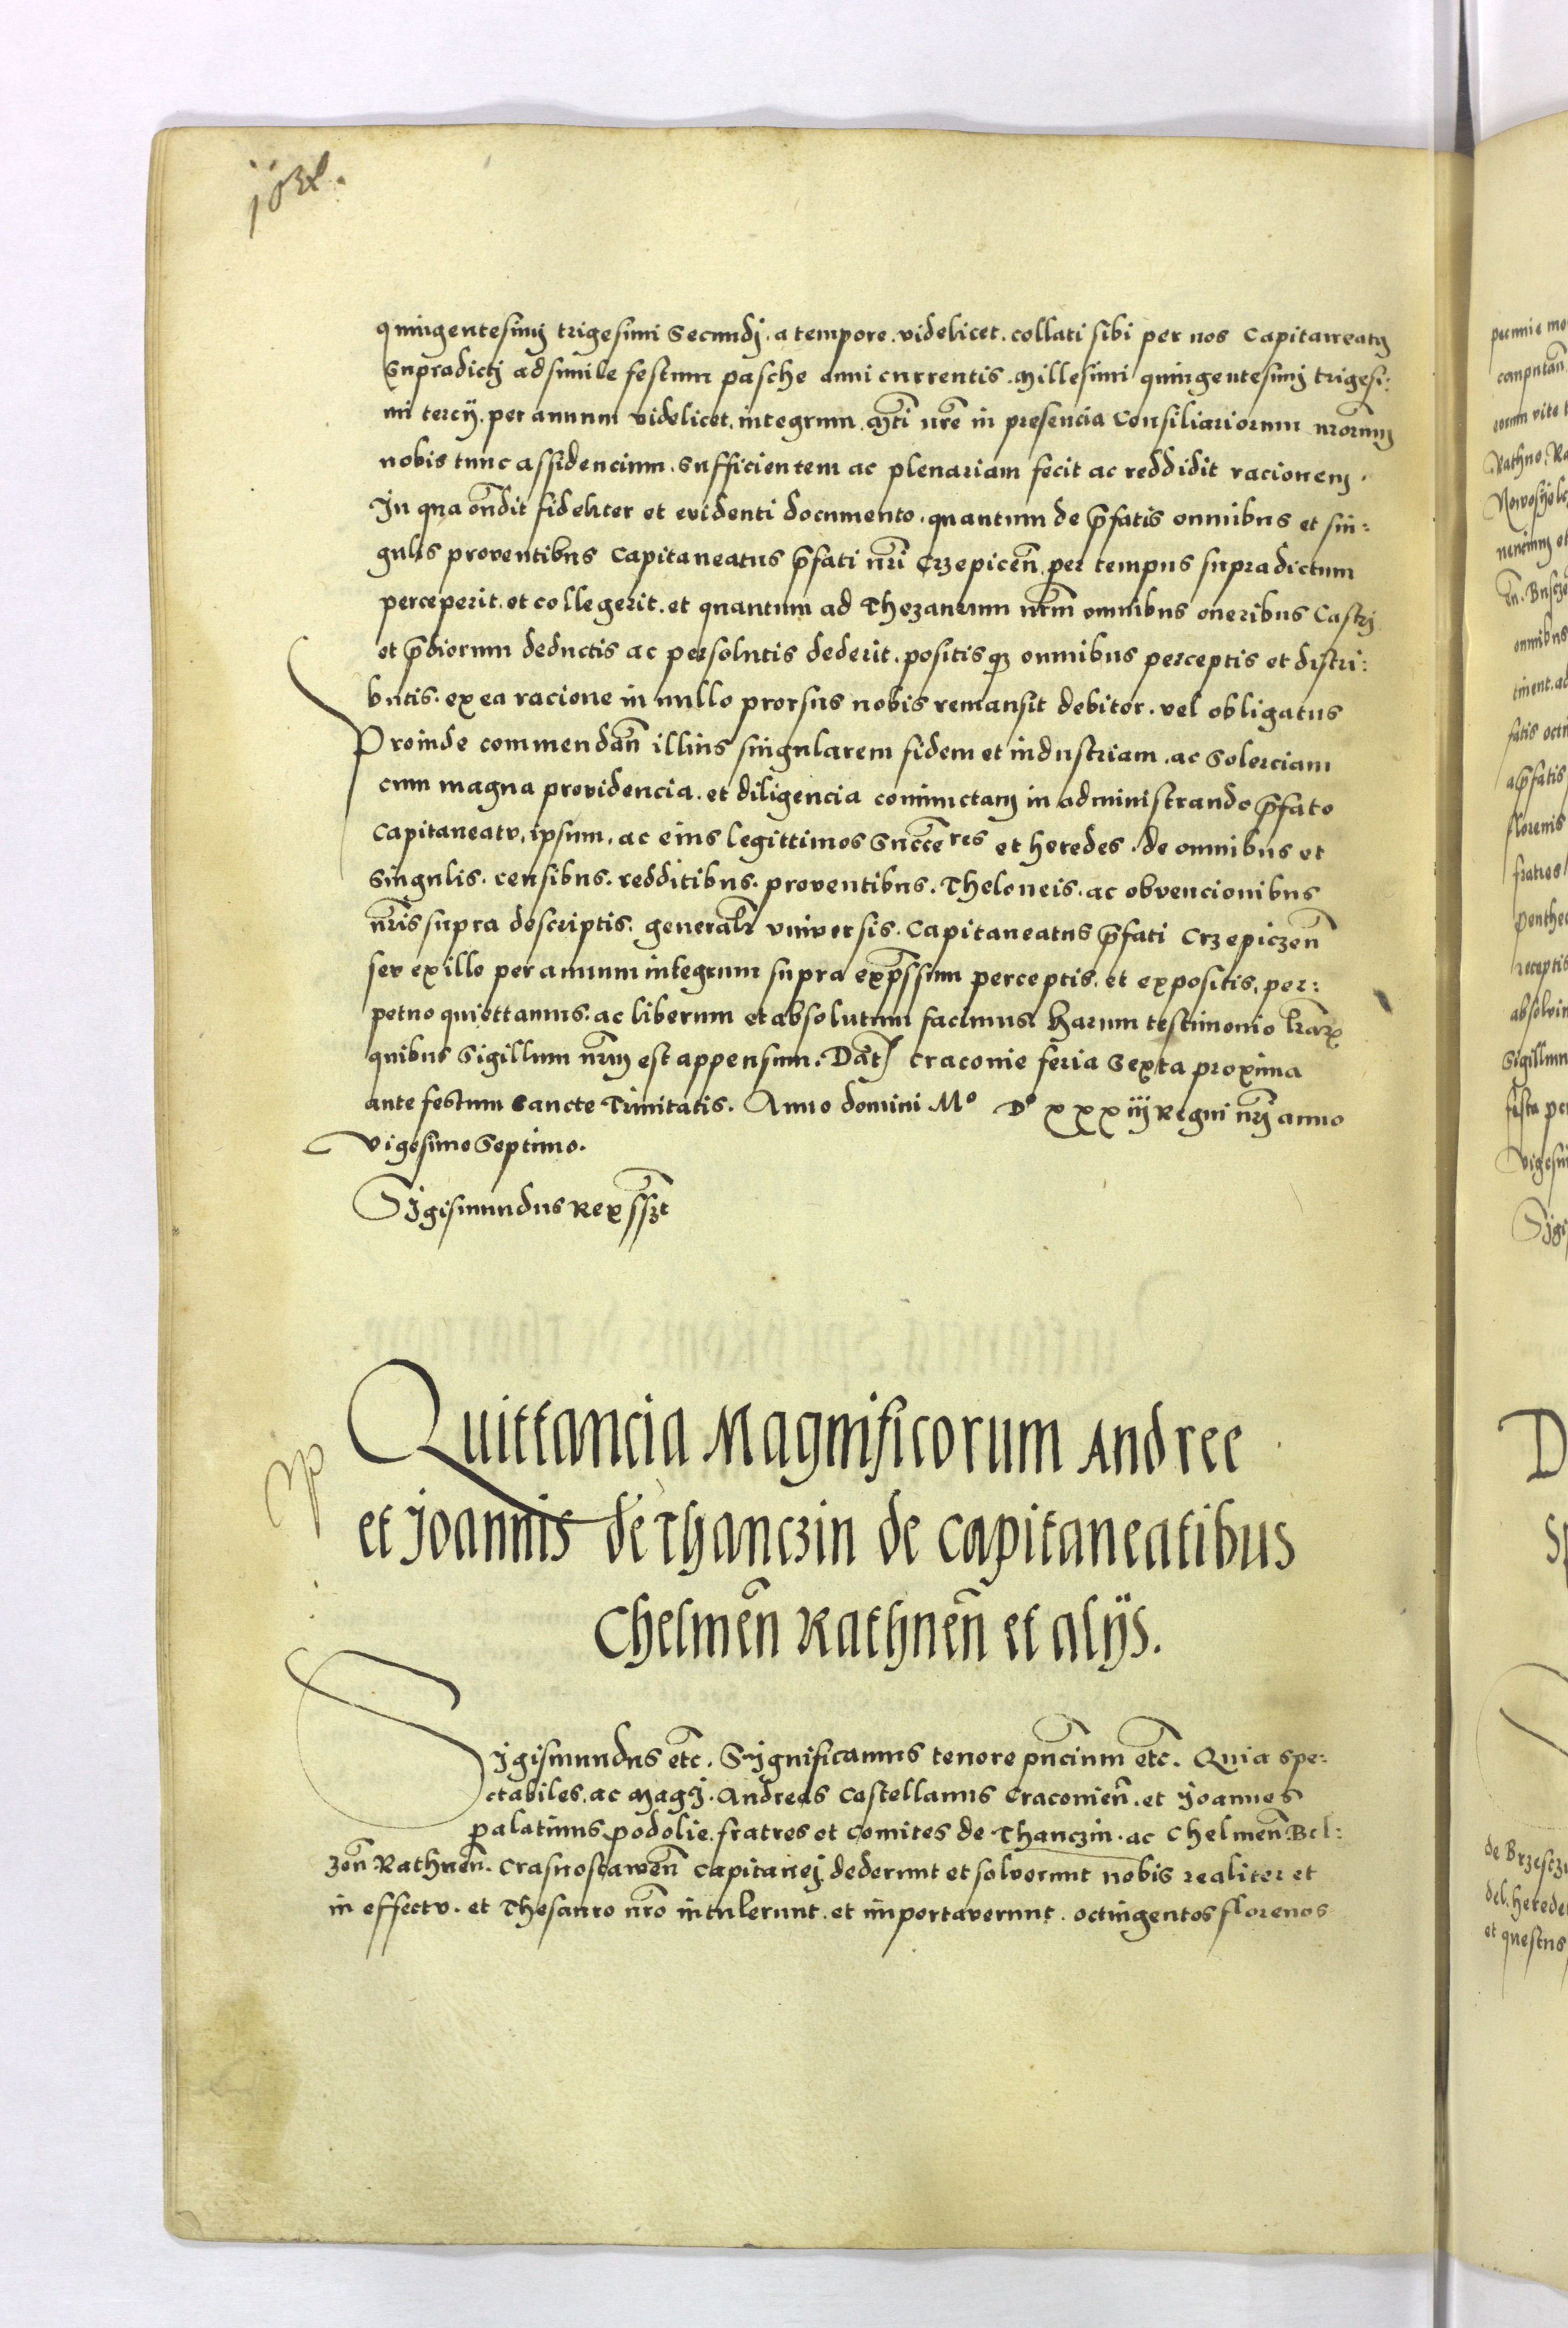 quingentesimj trigesimi Secundj. a tempore. videlicet. collati sibi per nos Capitaneatus
Supradictj ad simile festum pasche anni currentis. Millesimi quingentesimj trigesi:
mi tercij. per annum videlicet. integrum. Mti nre in presencia Consiliariorum nrorum
nobis tunc assidencium. Sufficientem ac plenariam fecit ac reddidit racionem.
In qua ondit fideliter et evidenti documento. quantum de pfatis omnibus et sin:
gulis proventibus Capitaneatus pfati nri Crzepicen. per tempus supradictum
perceperit. et collegerit. et quantum ad Thezaurum nrm omnibus oneribus Castrj
et pdiorum deductis ac persolutis dederit. positisqz omnibus perceptis et distri:
butis. ex ea racione in nullo prorsus nobis remansit debitor. vel obligatus
Proinde commendan illius singularem fidem et industriam. ac Solerciam
cum magna providencia. et diligencia coniunctam in administrando pfato
Capitaneatu, ipsum, ac eius legittimos Succeres et heredes. de omnibus et
Singulis. censibus. redditibus. proventibus. Theloneis. ac obvencionibus
nris supra descriptis. generalr vniversis. Capitaneatus pfati Crzepiczen
seu ex illo per annum integrum supra expssum perceptis. et expositis, per:
petuo quiettamus. ac liberum et absolutum facimus. Harum testimonio lrarum
quibus Sigillum nrum est appensum. Dat Cracovie feria Sexta proxima
ante festum Sancte Trinitatis. Anno domini Mo Do xxxiij Regni nrj anno
vigesimo Septimo.
Sigismundus Rex sszt
Quittancia Magnificorum Andree
et Joannis de Thanczin de capitaneatibus
Chelmen Rathnen et alijs.
Sigismundus etc. Significamus tenore pncium etc. Quia spe:
ctabiles, ac Magci. Andreas Castellanus Cracovien. et Joannes
palatinus podolie. fratres et Comites de Thanczin. ac Chelmen. Bel:
zen Rathnen. Crasnostawen Capitanej dederunt et solverunt nobis realiter et
in effectu. et Thesauro nro intulerunt. et importaverunt. octingentos florenos